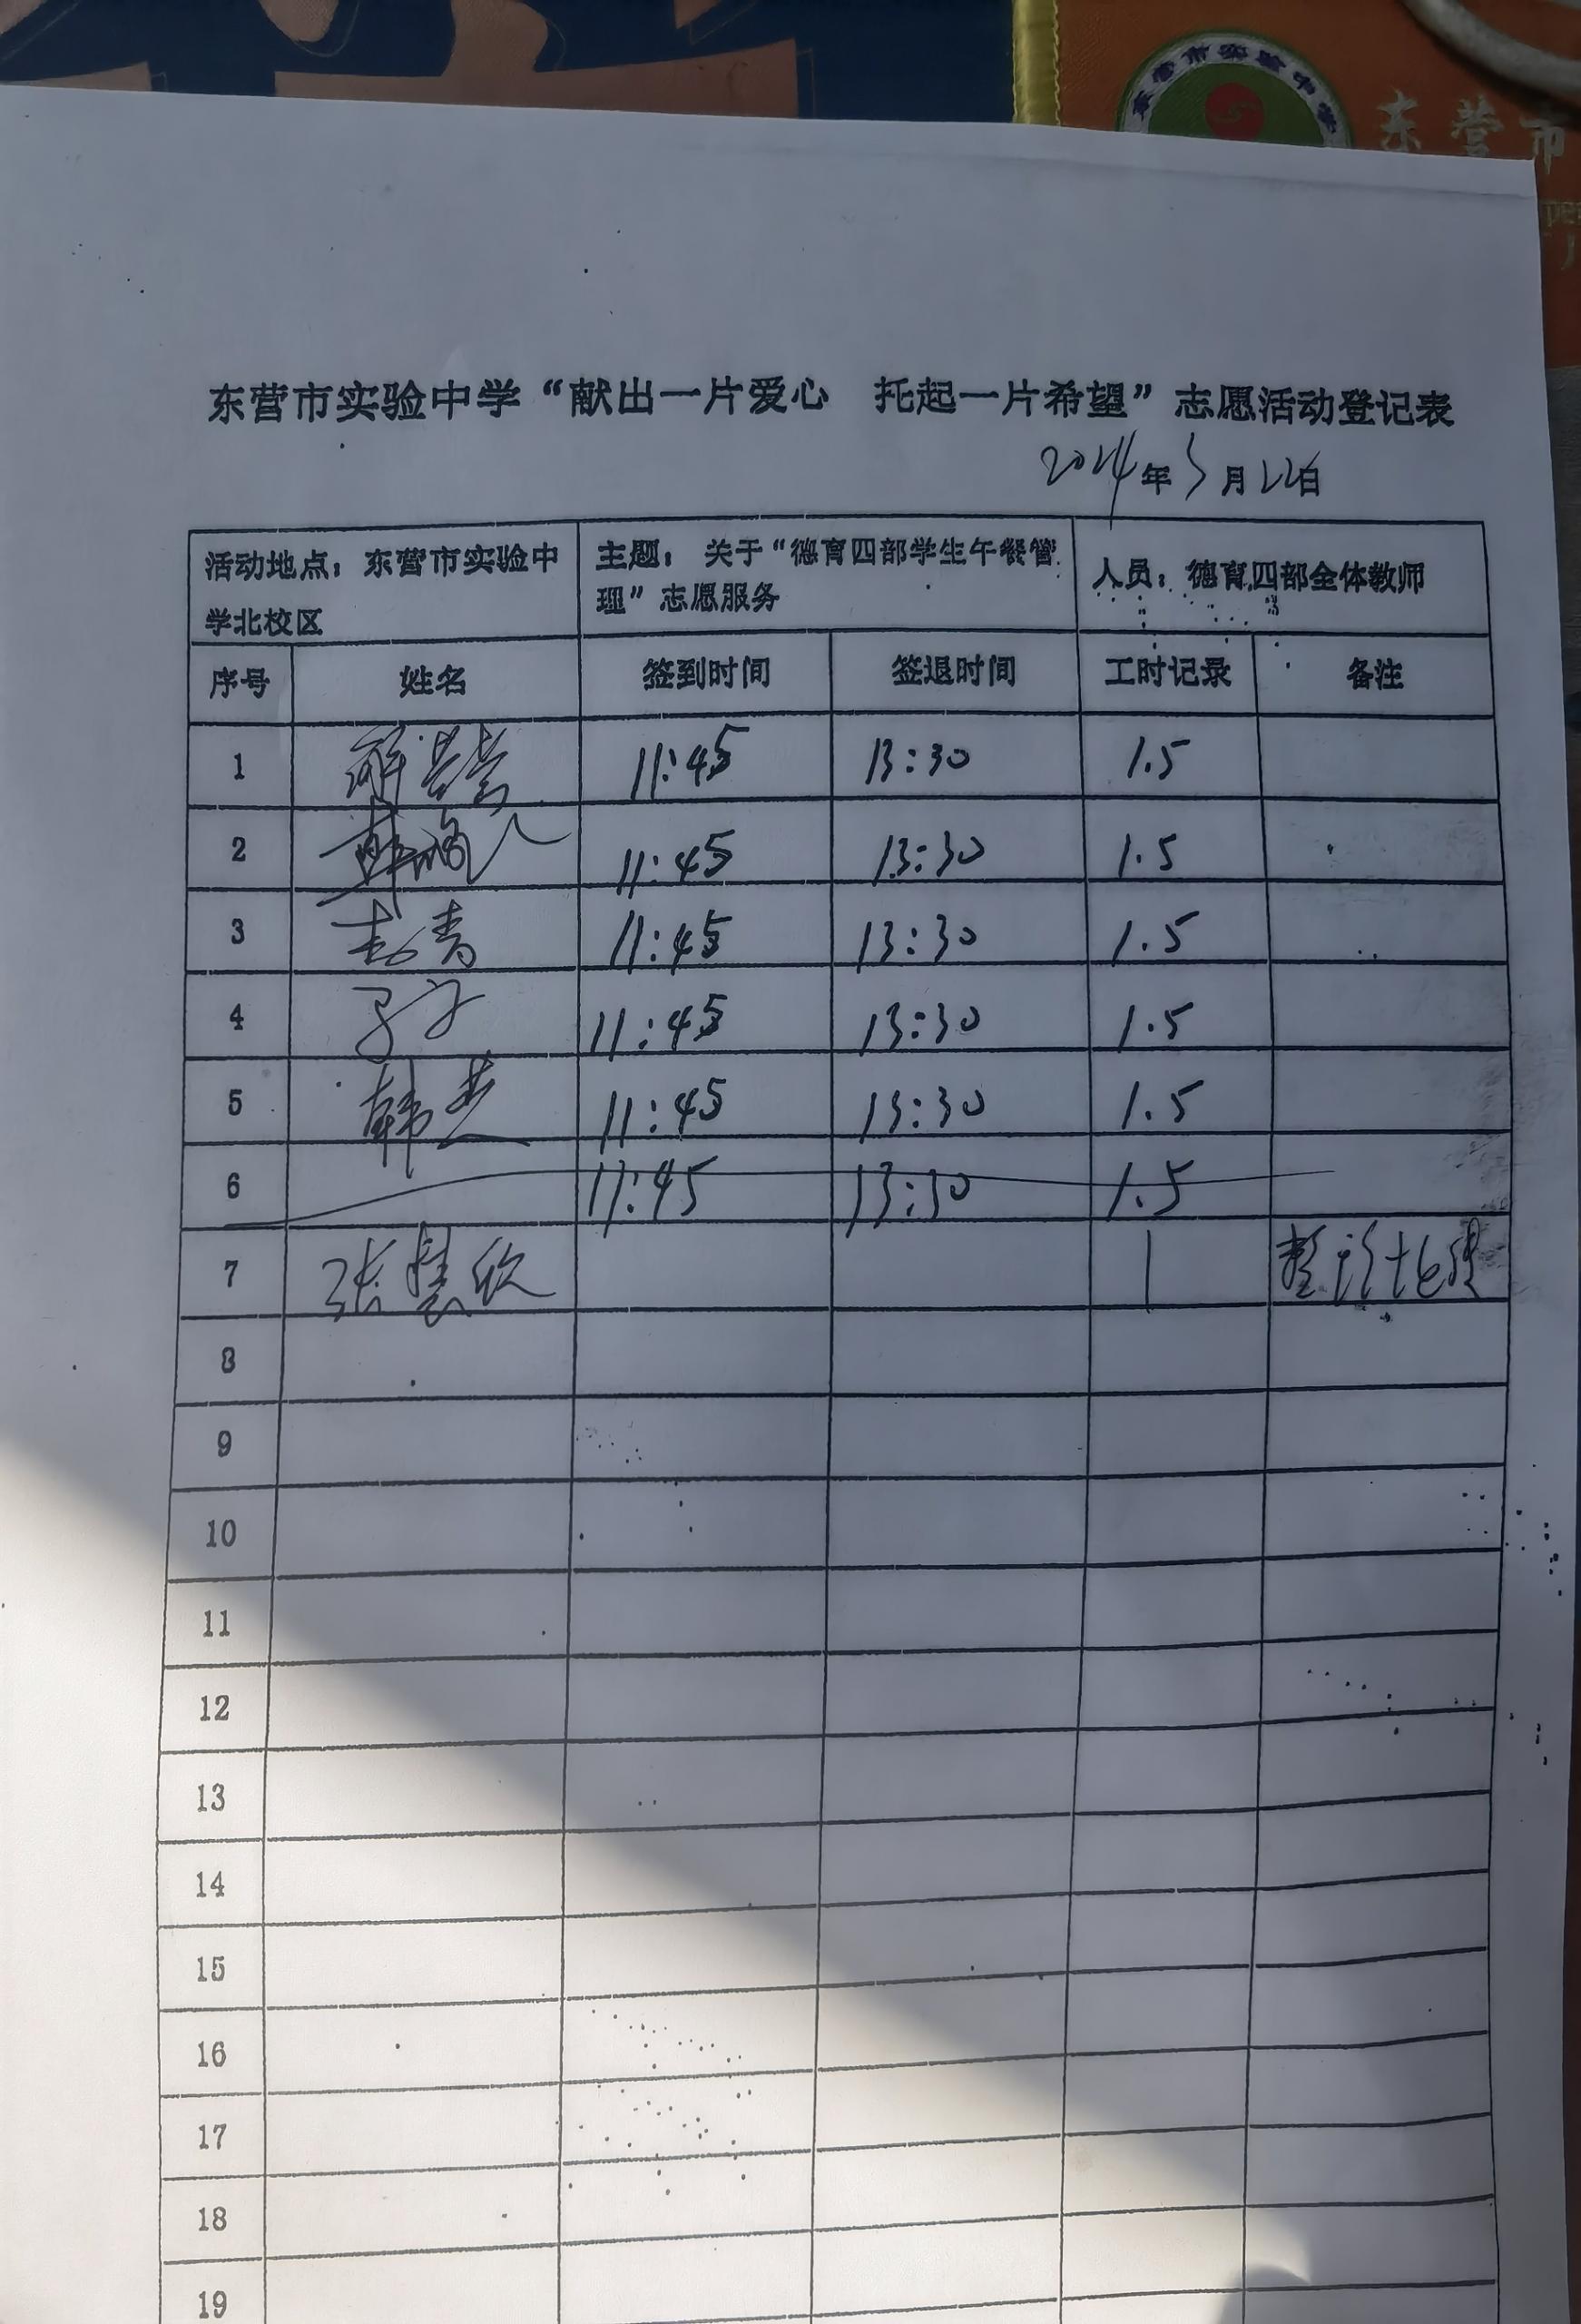 东营市实验中学
东营市
东营市实验中学“献出一片爱心 托起一片希望”志愿活动登记表
2024年3月22日
活动地点：东营市实验中学北校区 主题：关于“德育四部学生午餐管理”志愿服务 人员：德育四部全体教师
序号 姓名 签到时间 签退时间 工时记录 备注
1 11:45 13:30 1.5
2 11:45 13:30 1.5
3 赵青 11:45 13:30 1.5
4 11:45 13:30 1.5
5 韩芝 11:45 13:30 1.5
6 11:45 13:30 1.5
7 张慧欣 1
8
9
10
11
12
13
14
15
16
17
18
19